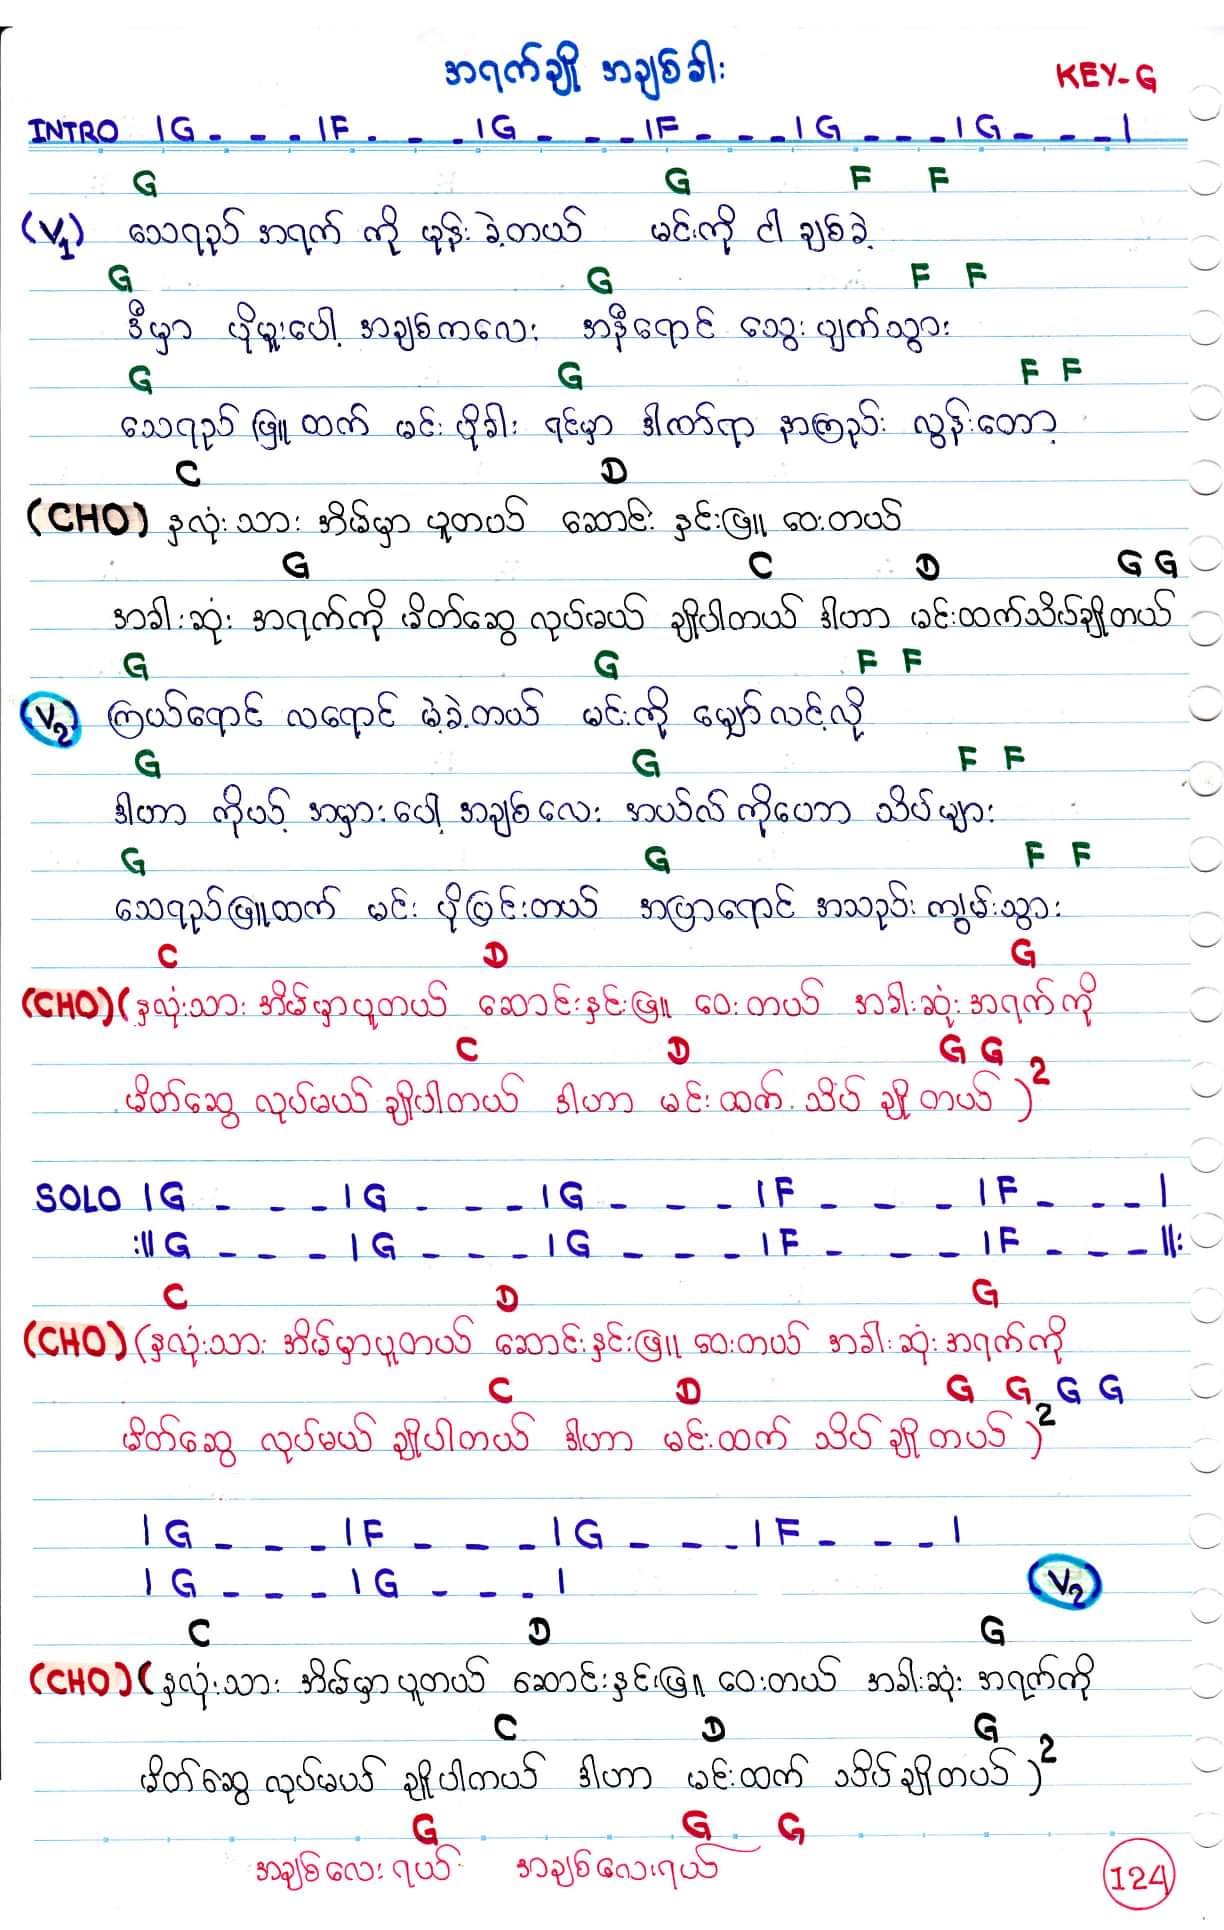 အရက်ချို အချစ်ခါး
KEY-G
INTRO |G - - - |F - - - |G - - - |F - - - |G - - - |G - - - |
G G F F
(V1) သေရည် အရက် ကို မုန်း ခဲ့တယ် မင်းကို ငါ ချစ်ခဲ့
G G F F
ဒီမှာ ပိုမူးပေါ့ အချစ်ကလေး အနီရောင် သွေး ပျက်သွား
G G F F
သေရည်ဖြူ ထက် မင်း ပိုခါး ရင်မှာ ဒါဏ်ရာ နာကြည်း လွန်းတော့
C D
(CHO) နှလုံးသား အိမ်မှာ ပူတယ် ဆောင်း နှင်းဖြူ ဝေးတယ်
G C D G G
အခါးဆုံး အရက်ကို မိတ်ဆွေ လုပ်မယ် ချိုပါတယ် ဒါဟာ မင်းထက်သိပ်ချိုတယ်
G G F F
V2 ကြယ်ရောင် လရောင် မဲ့ခဲ့တယ် မင်းကို မျှော်လင့်လို့
G G F F
ဒါဟာ ကိုယ့် အမှားပေါ့ အချစ်လေး အယ်လ်ကိုဟော သိပ်များ
G G F F
သေရည်ဖြူထက် မင်း ပိုပြင်းတယ် အပြာရောင် အသည်း ကျွမ်းသွား
C D G
(CHO) (နှလုံးသား အိမ်မှာပူတယ် ဆောင်းနှင်းဖြူ ဝေးတယ် အခါးဆုံး အရက်ကို
C D G G
မိတ်ဆွေ လုပ်မယ် ချိုပါတယ် ဒါဟာ မင်းထက် သိပ် ချိုတယ် )2
SOLO |G - - - |G - - - |G - - - |F - - - |F - - - |
:||G - - - |G - - - |G - - - |F - - - |F - - - ||:
C D G
(CHO) (နှလုံးသား အိမ်မှာပူတယ် ဆောင်းနှင်းဖြူ ဝေးတယ် အခါးဆုံး အရက်ကို
C D G G G G
မိတ်ဆွေ လုပ်မယ် ချိုပါတယ် ဒါဟာ မင်းထက် သိပ် ချိုတယ် )2
|G - - - |F - - - |G - - - |F - - - |
|G - - - |G - - - |
V2
C D G
(CHO) (နှလုံးသား အိမ်မှာပူတယ် ဆောင်းနှင်းဖြူ ဝေးတယ် အခါးဆုံး အရက်ကို
C D G
မိတ်ဆွေ လုပ်မယ် ချိုပါတယ် ဒါဟာ မင်းထက် သိပ်ချိုတယ် )2
G G G
အချစ်လေးရယ် အချစ်လေးရယ်
124